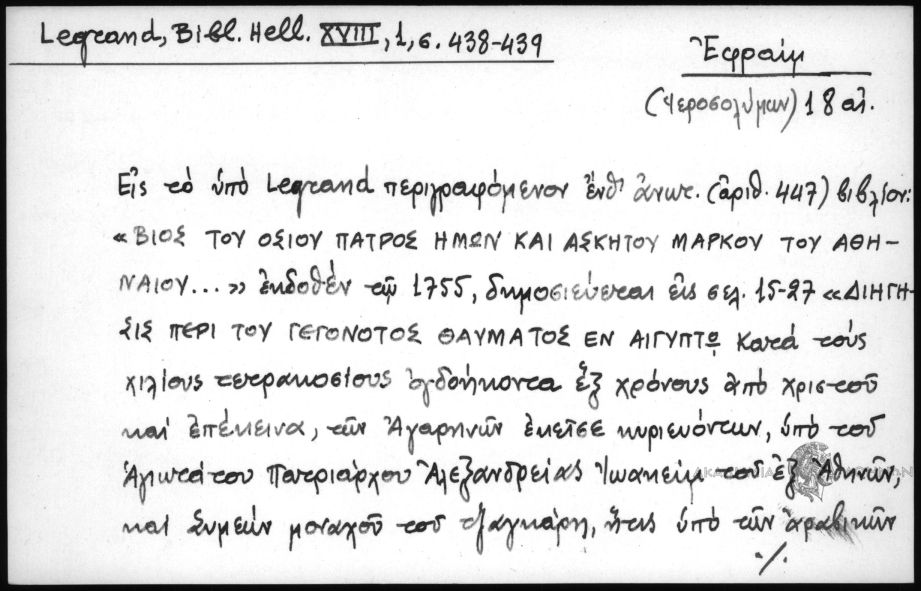 Legrand, Bibl. Hell. XVIII, 1, σ. 438-439
Ἐφραίμ
(Ἱεροσολύμων) 18 αἰ.
Εἰς τό ὑπό Legrand περιγραφόμενον ἔνθ' ἀνωτ. (ἀριθ. 447) βιβλίον:
«ΒΙΟΣ ΤΟΥ ΟΣΙΟΥ ΠΑΤΡΟΣ ΗΜΩΝ ΚΑΙ ΑΣΚΗΤΟΥ ΜΑΡΚΟΥ ΤΟΥ ΑΘΗ-
ΝΑΙΟΥ...» ἐκδοθέν τῷ 1755, δημοσιεύεται εἰς σελ. 15-27 «ΔΙΗΓΗ-
ΣΙΣ ΠΕΡΙ ΤΟΥ ΓΕΓΟΝΟΤΟΣ ΘΑΥΜΑΤΟΣ ΕΝ ΑΙΓΥΠΤῼ κατά τούς
χιλίους τετρακοσίους ὀγδοήκοντα ἕξ χρόνους ἀπό Χριστοῦ
καί ἐπέκεινα, τῶν Ἀγαρηνῶν ἐκεῖσε κυριευόντων, ὑπό τοῦ
Ἁγιωτάτου Πατριάρχου Ἀλεξανδρείας Ἰωακείμ τοῦ ἐξ Ἀθηνῶν,
καί Συμεών μοναχοῦ τοῦ τζαγκάρη, ἥτις ὑπό τῶν ἀραβικῶν
./.